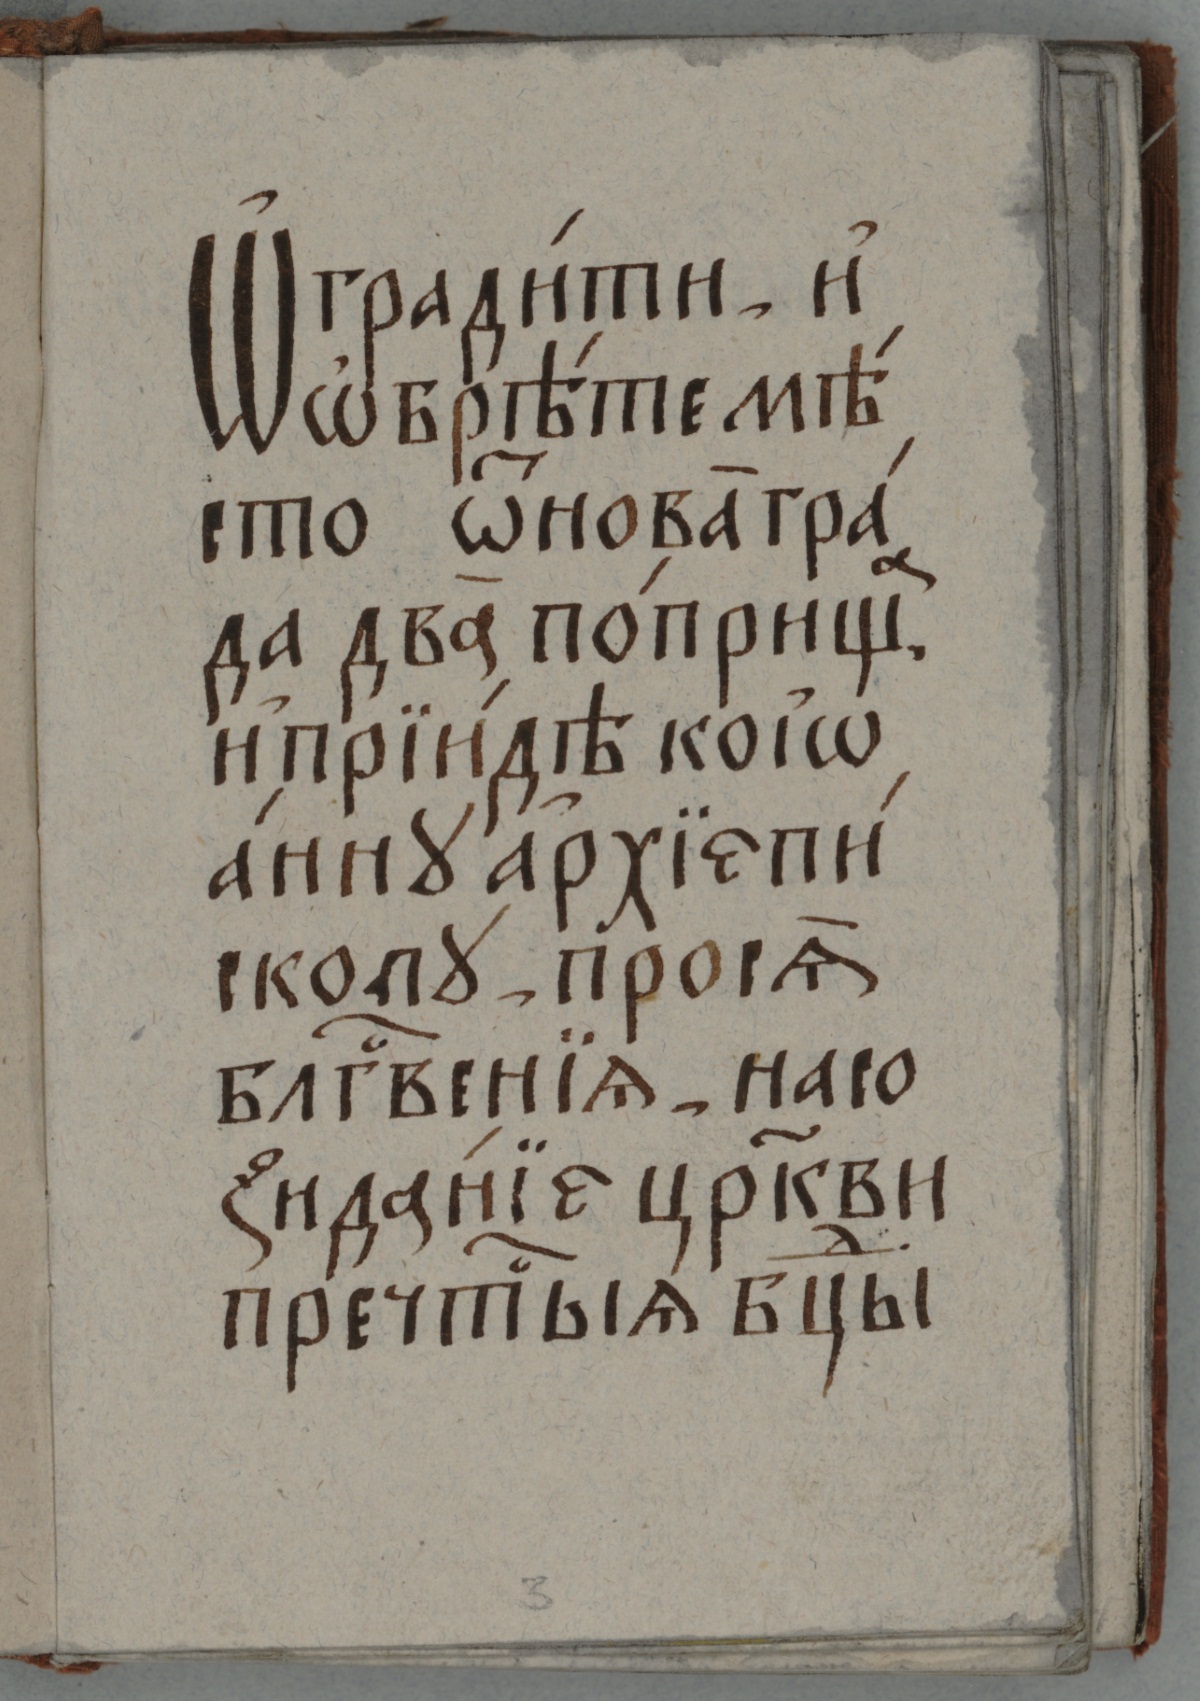 Ѡ҆гради́ти, и҆
ѡ҆брѣ́те мѣ́
сто ѿ нова̄гра́
да два̄ по́прищꙵа.
и҆ прїи́дѣ ко і҆ѡ
а́нну́ а҆рхїепи́
скопу́, прося̄
блг҇венїѧ, на со
ꙁида́нїе цр҃кви
преч҇тыѧ бц҃ы
3